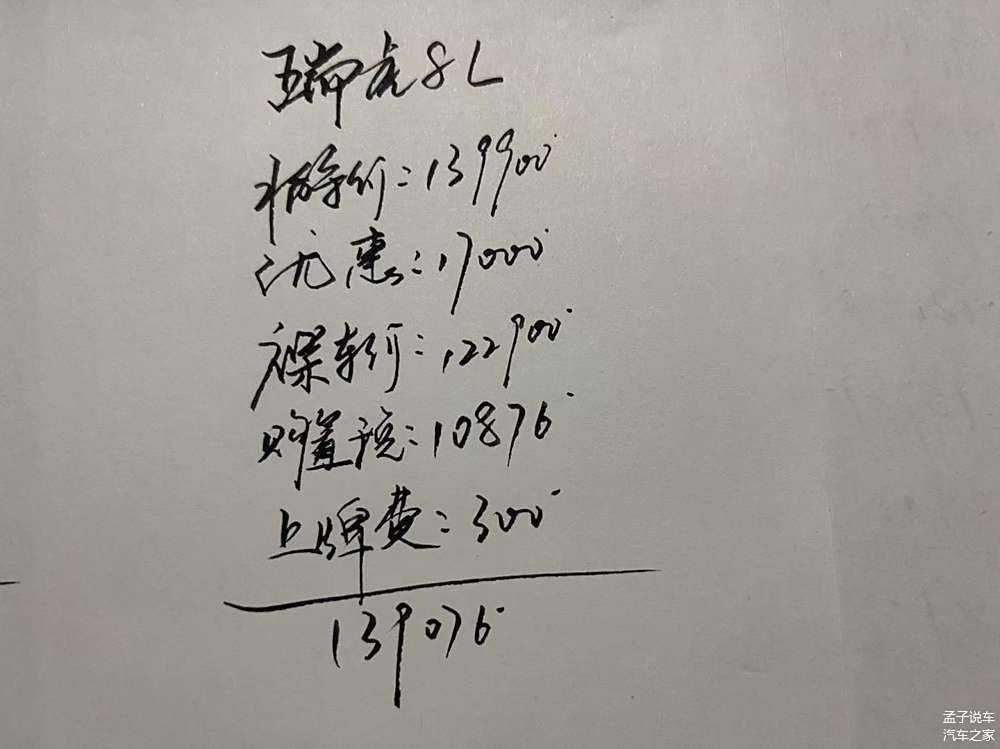 瑞虎8L
指导价：139900
优惠：17000
裸车价：122900
购置税：10876
上牌费：300
139076
孟子说车
汽车之家